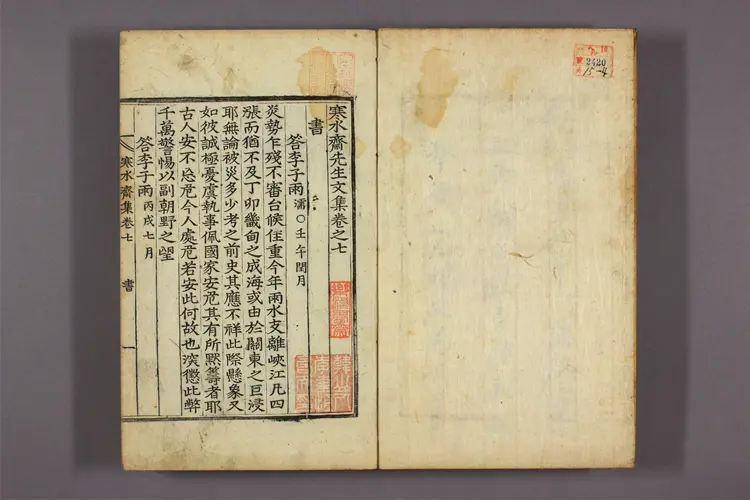 寒水齋先生文集卷之七
書
答李子雨 濡○壬午閏月
炎勢乍殘不審台候住重今年雨水支離峽江凡四
漲而猶不及丁卯畿甸之成海或由於關東之巨浸
耶無論被災多少考之前史其應不祥此際懸象又
如彼誠極憂虞執事佩國家安危其有所默籌者耶
古人安不忘危今人處危若安此何故也深懲此弊
千萬警惕以副朝野之望
答李子雨 丙戌七月
寒水齋集卷七
書
一
2420
15-4